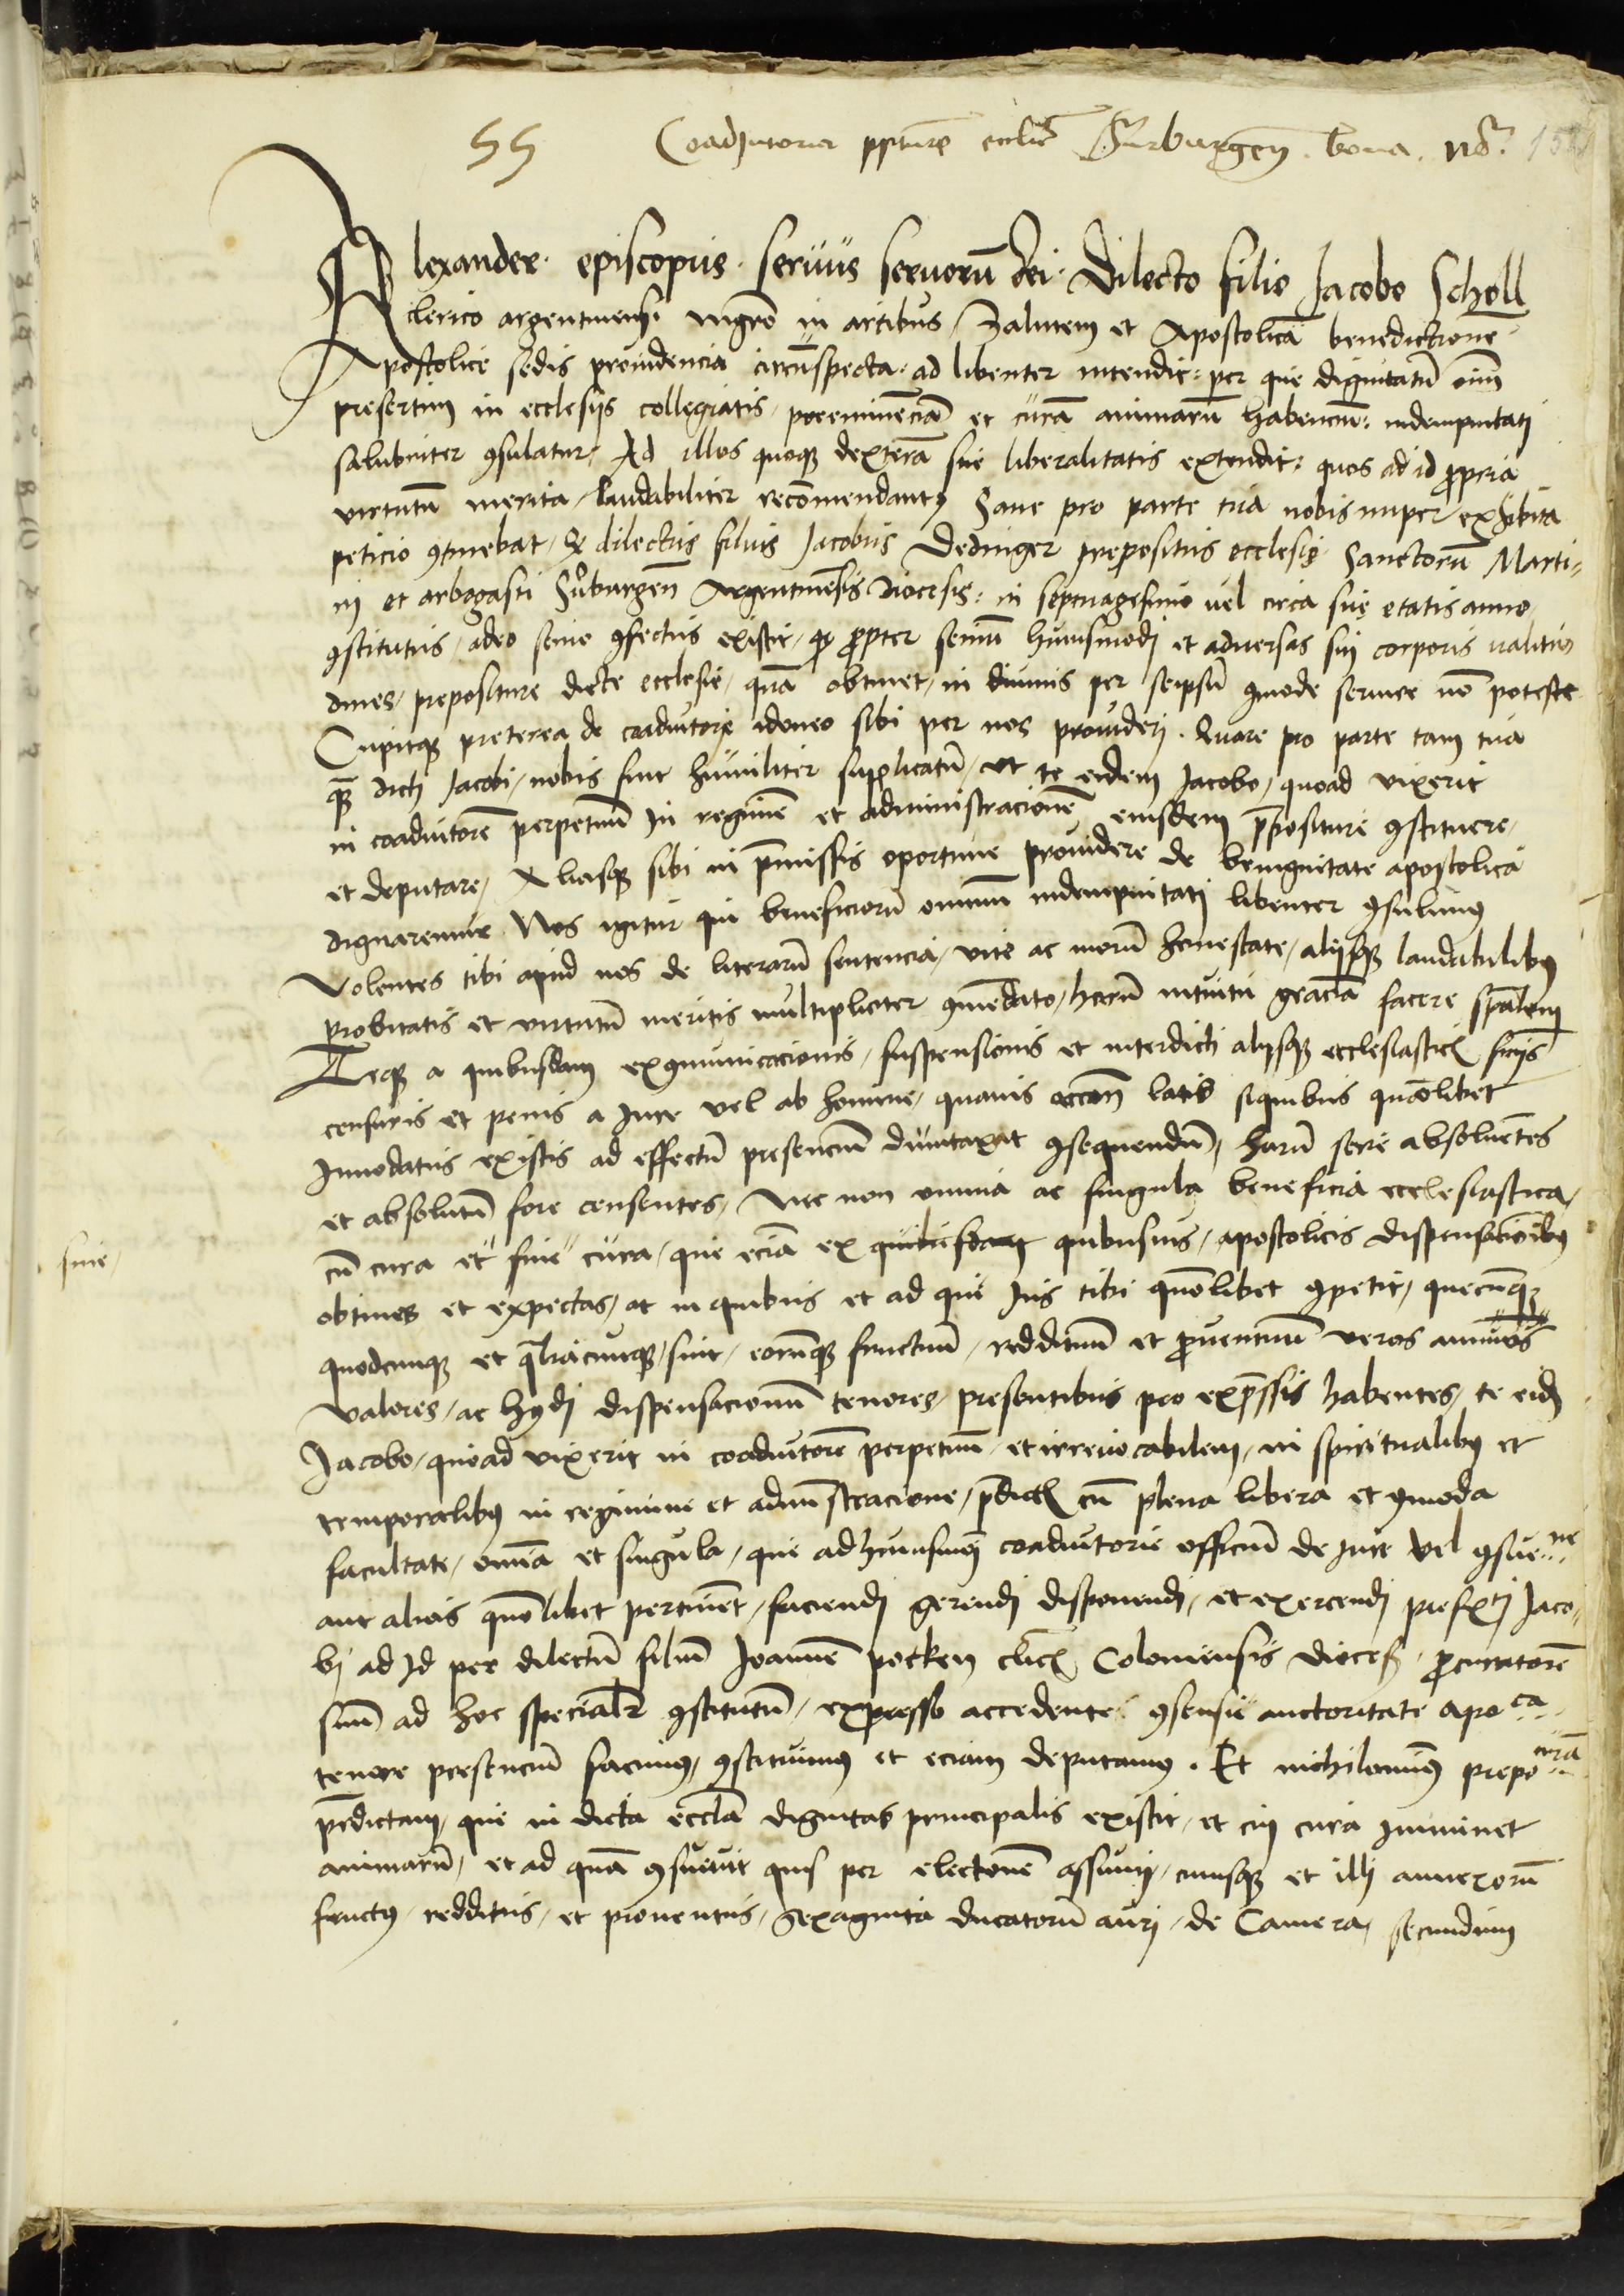 55 Coadjutoria ppiture ecclie Surburgen. bona. no. 152
Alexander. episcopus. seruus seruorū dei. Dilecto filio Jacobo Scholl
clerico argentinensi. mgrō in artibus, Salutem et Apostolicā benedictionē
Apostolice sedis prouidencia circūspecta. ad libenter intendit: per que dignitatū oīm
presertim in ecclesijs collegiatis, preeminēciā et curā animarū habenciū: indempnitati
salubriter ꝯsulatur, Ad illos quoqꝫ dexterā sue liberalitatis extendit: quos ad id propria
virtutū merita, laudabiliter recōmendantꝰ Sane pro parte tua nobis nuper exhibita
peticio ꝯtinebat, ꝙ dilectus filius Jacobus Dedinger prepositus ecclesię Sanctorū Marti-
nj et arbogasti Sůrburgen̄ Argentinēsis diocesis: in septuagesimo uel circa suę etatis anno,
ꝯstitutus, adeo senio ꝯfectus existit, ꝙ propter seniū huiusmodj et aduersas suj corporis ualitu-
dines, prepositure dicte ecclesie, quā obtinet, in diuinis per seipsū ꝯmode seruire nō potest
Cupitqꝫ preterea de coadiutore idoneo sibi per nos prouiderj. Quare pro parte tam tua
qꝫ dictj Jacobi, nobis fuit humiliter suplicatū, ut te eidem Jacobo, quoad vixerit
in coadiutorē perpetuū in regimē et administracionē eiusdem p̄positure ꝯstituere,
et deputare, Aliasqꝫ sibi in p̄missis oportune prouidere de benignitate apostolica
dignaremur Nos igitur qui beneficiorū omniū indempnitatj libenter ꝯsulimꝰ
Volentes tibi apud nos de literarū sentencia, vite ac morū honestate, alijsqꝫ laudabilibꝰ
probitatis et virtutū meritis multipliciter ꝯmēdato, horū intuitu graciā facere sp̄alem
Teqꝫ a quibusdam exꝯmunicacionis, suspensionis et interdicti alijsqꝫ ecclesiasticꝭ sn̄ijs
censuris et penis a Jure vel ab homine, quauis occon̄ latis siquibus quōlibet
Innodatus existis ad effectū presenciū dumtaxat ꝯsequendū, harū serie absoluētes
et absolutū fore censentes, Nec non omnia ac singula beneficia ecclesiastica,
cū cura et sine cura, que eciā ex quibusdam quibusuis, apostolicis dispensacionibꝰ
sine,
obtines et expectas, ac in quibus et ad que Jus tibi quōlibet ꝯpetit, quecūqꝫ
quodcunqꝫ et qualiacunqꝫ, sint, eorūqꝫ fructuū, reddituū et prouentuū veros annuos
Valores, ac hꝰmōdj dispensacionū tenores, presentibus pro exp̄ssis habentes, te eidē
Jacobo, quoad vixerit in coadiutorē perpetuū, et irreuocabilem, in spiritualibꝰ et
temporalibꝰ in regimine et administracione, p̄dictꝭ cū plena libera et ꝯmoda
facultate, omīa et singula, que ad huiusmōj coadiutorie officiū de Jure vel ꝯsue..ne
aut alias quōlibet pertinēt, faciendj gerendj disponendj, et exercendj prefatj Jaco-
bj ad Id per dilectū filiū Joannē potken clīcꝭ Coloniensis dioceß, procuratorē
suū ad hoc specialr ꝯstitutū, expresso accedente ꝯsensu auctoritate apo..ca
tenore presenciū facimꝰ, ꝯstituimꝰ et eciam deputamꝰ. Et nichilominꝰ prepo..turā
p̄dictam, que in dicta eccl̄ia dignitas principalis existit, et cuj cura imminet
animarū, et ad quā ꝯsueuit quis per electionē assumj, cuiusqꝫ et illj annexorū
fructꝰ, redditus, et prouentus, Sexaginta ducatorū aurj, de Camera, secundum